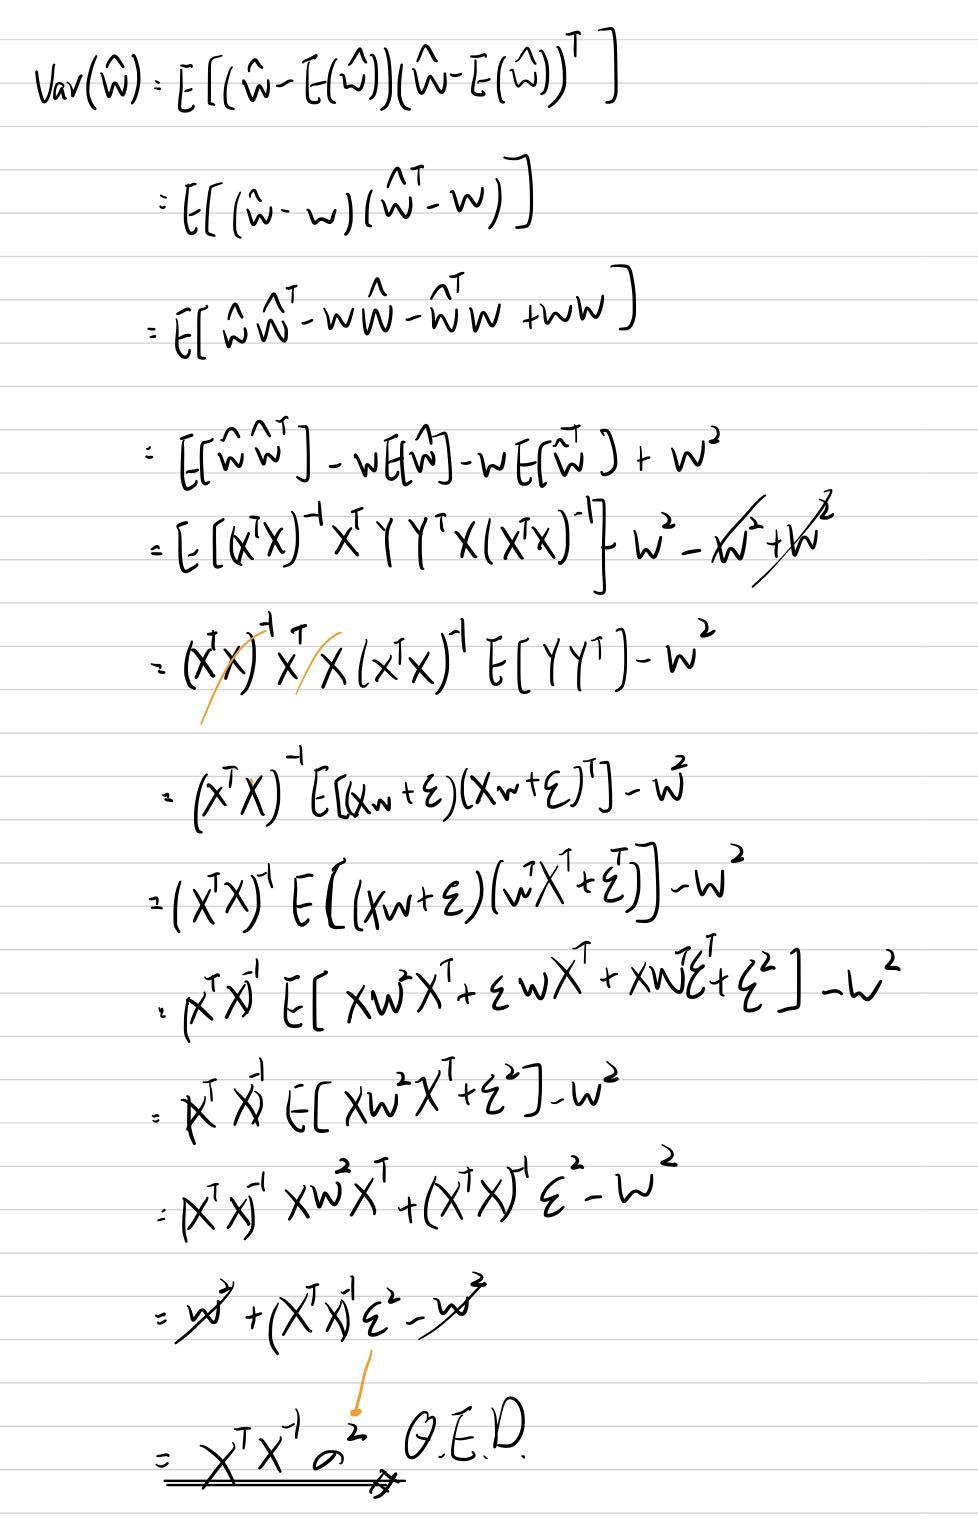 Var(ŵ) = E[(ŵ - E(ŵ))(ŵ - E(ŵ))ᵀ]
= E[(ŵ - w)(ŵᵀ - w)]
= E[ŵŵᵀ - wŵ - ŵᵀw + ww]
= E[ŵŵᵀ] - wE[ŵ] - wE[ŵᵀ] + w²
= E[(XᵀX)⁻¹XᵀYYᵀX(XᵀX)⁻¹] - w² - w² + w²
= (XᵀX)⁻¹XᵀX(XᵀX)⁻¹E[YYᵀ] - w²
= (XᵀX)⁻¹E[(Xw + ε)(Xw + ε)ᵀ] - w²
= (XᵀX)⁻¹E[(Xw + ε)(wᵀXᵀ + εᵀ)] - w²
= (XᵀX)⁻¹E[Xw²Xᵀ + εwXᵀ + Xwᵀεᵀ + ε²] - w²
= (XᵀX)⁻¹E[Xw²Xᵀ + ε²] - w²
= (XᵀX)⁻¹Xw²Xᵀ + (XᵀX)⁻¹ε² - w²
= w² + (XᵀX)⁻¹ε² - w²
= XᵀX⁻¹σ² Q.E.D.